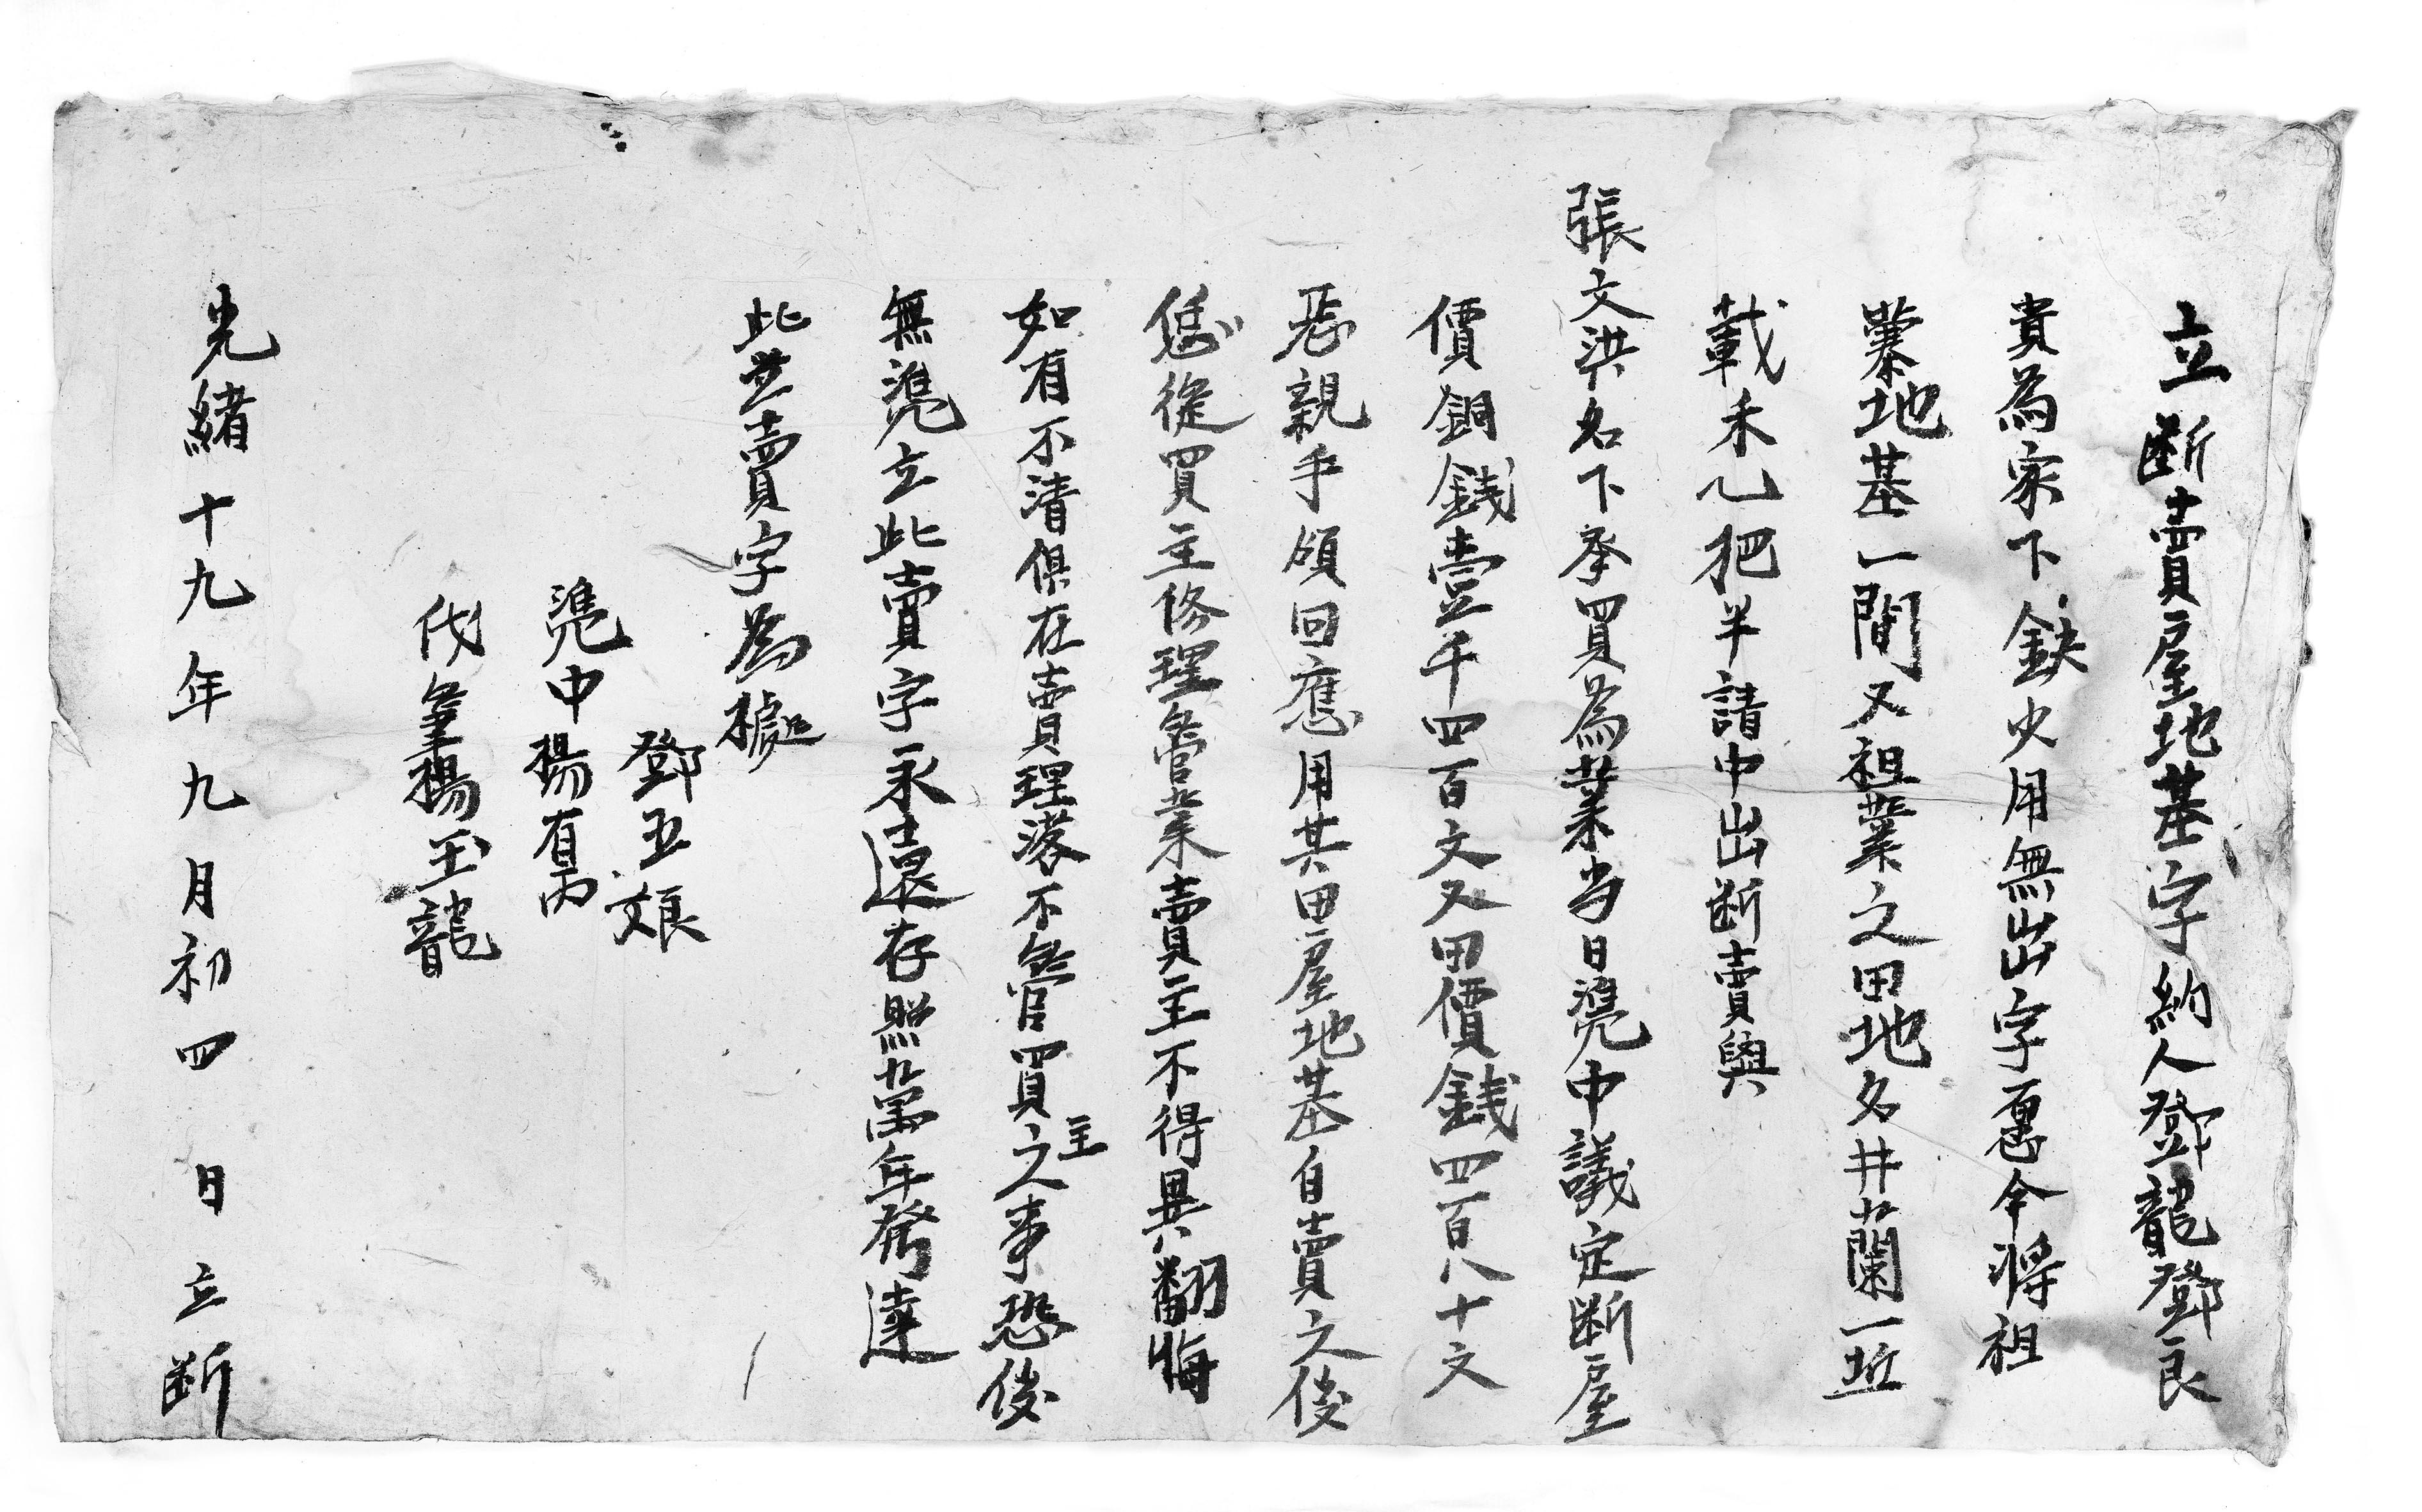 立断賣屋地基字約人鄧龍鄧良
貴為家下缺火用無出字惪今将祖
業地基一間又祖業之田地名井蘭一坵
載禾乙把半請中出断賣與
張文洪名下承買為業当日凴中議定断屋
價銅銭壹千四百文又田價銭四百八十文
親手領回應用其田屋地基自賣之後
恁從買主修理管業賣主不得異翻悔
如有不清俱在賣理落不管買主之事恐後
無凴立此賣字永遠存照萬年發達
此並賣字為據
鄧五娘
凴中楊有萬
代筆楊玉龍
光緒十九年九月初四日立断